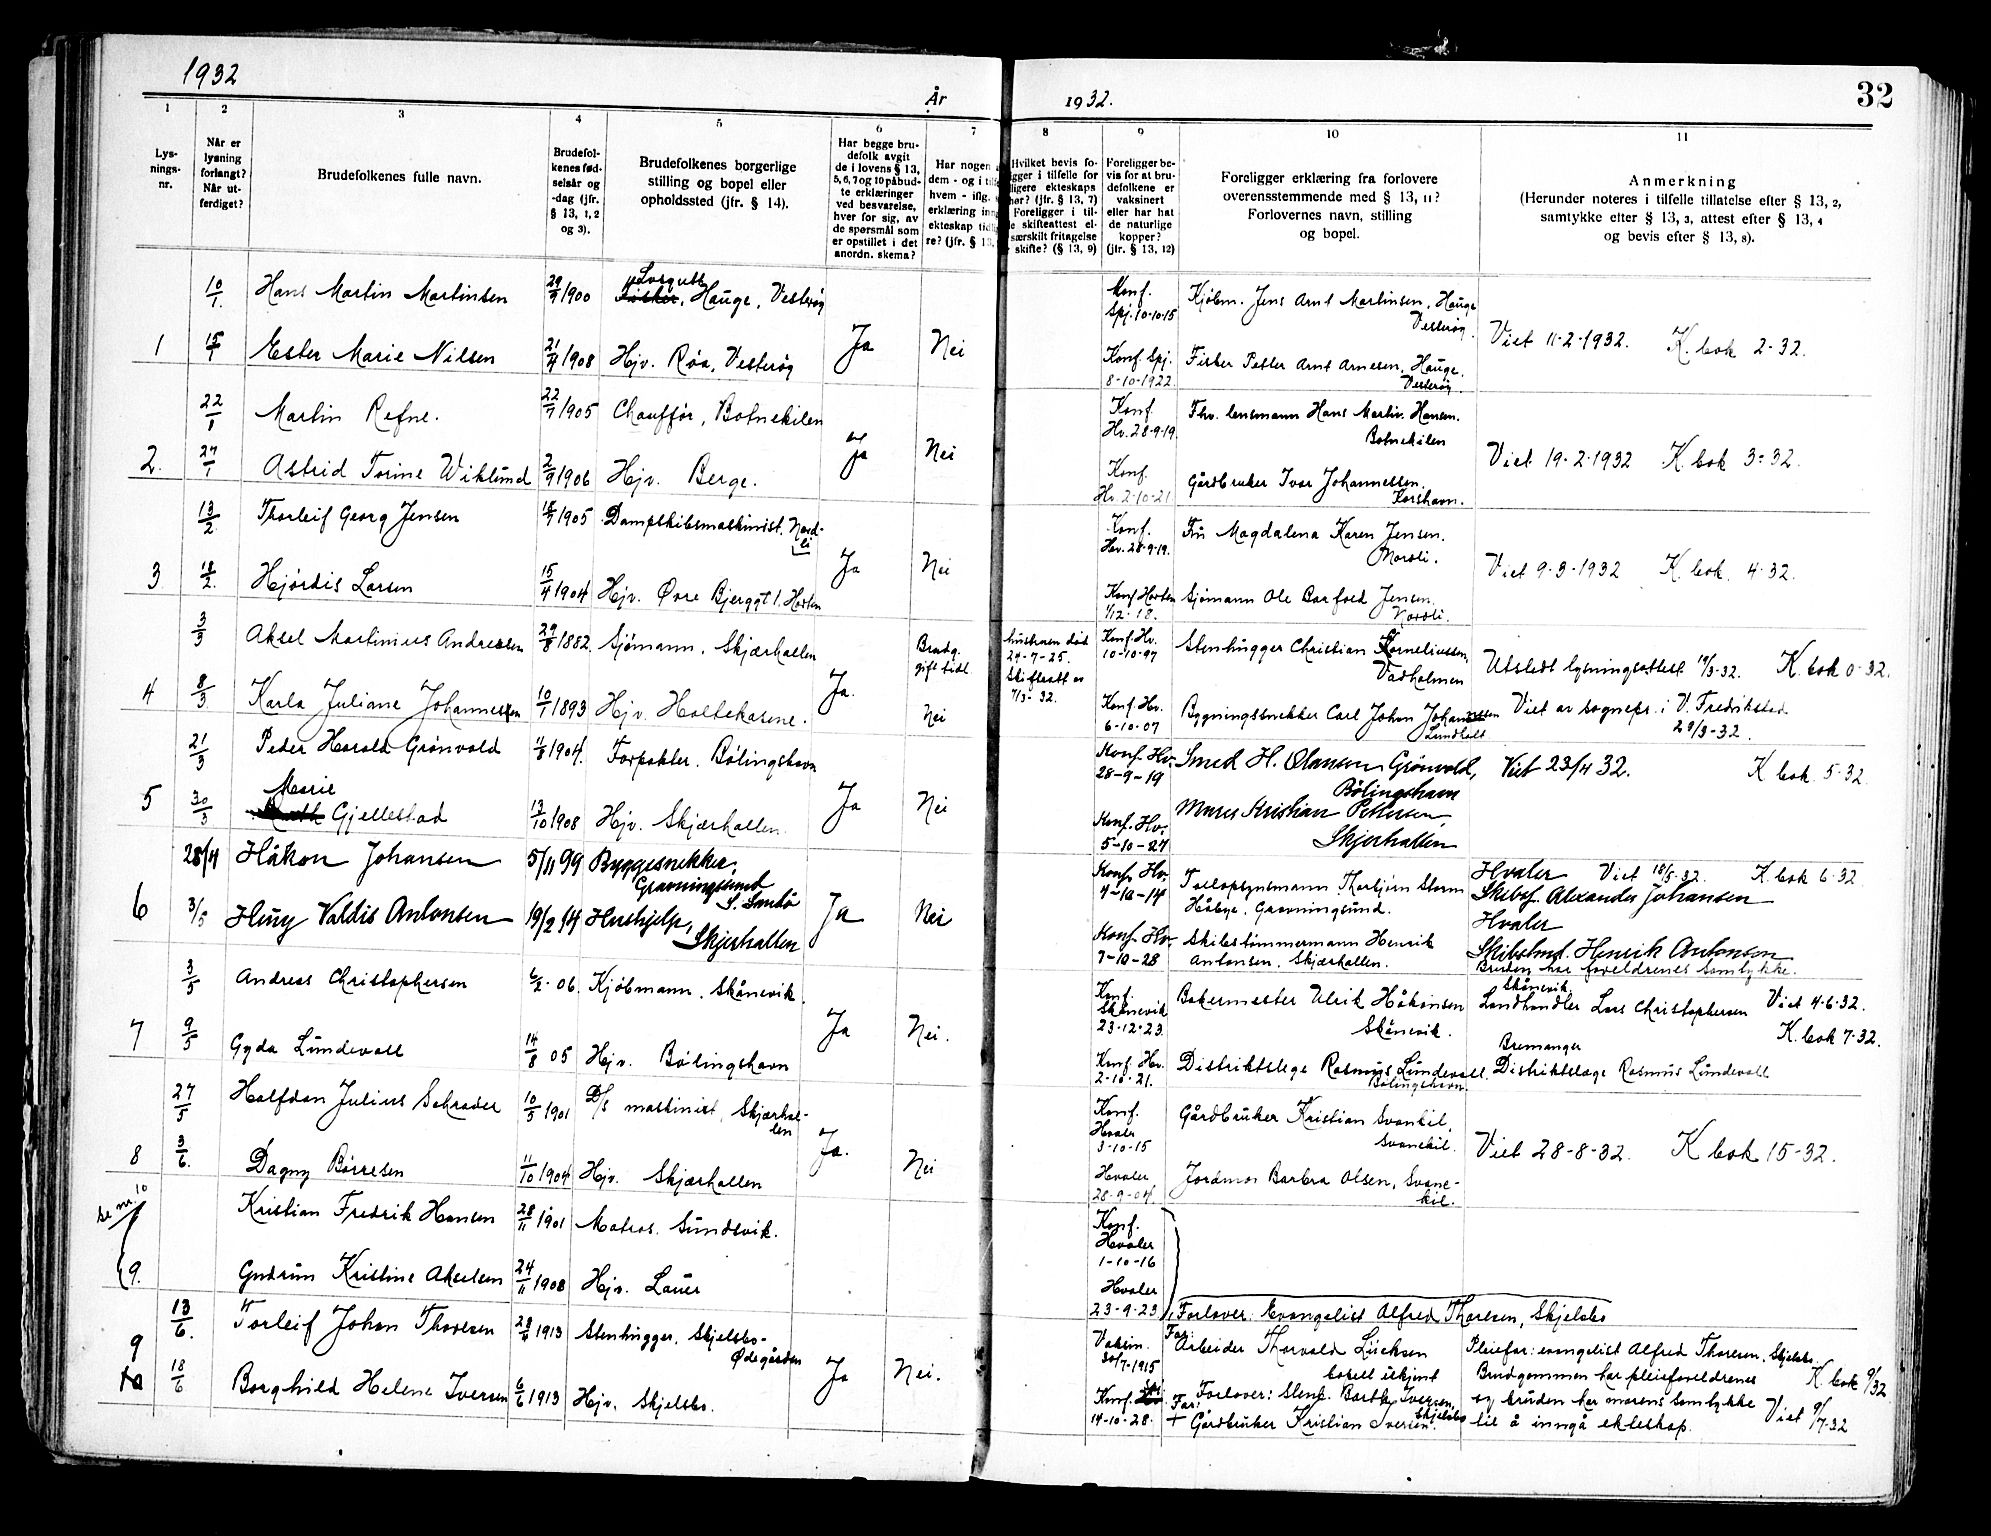 1932
År
1932.
32
1
2
3
4
5
6
7
8
9
10
11
Lys-
nings-
nr.
Når er
lysning
forlangt?
Når ut-
ferdiget?
Brudefolkenes fulle navn.
Brudefol-
kenes fød-
selsår og
-dag (jfr.
§ 13, 1, 2
og 3).
Brudefolkenes borgerlige
stilling og bopel eller
opholdssted (jfr. § 14).
Har begge bru-
defolk avgit
de i lovens § 13,
5, 6, 7 og 10 påbud-
te erklæringer
ved besvarelse,
hver for sig, av
de spørsmål som
er opstillet i det
anordn. skema?
Har nogen
dem - og i
hvem - iflg.
erklæring
ekteskap
re? (jfr. § 13,
Hvilket bevis fo-
ligger i tilfelle for
ligere ekteskaps
hør? (jfr. § 13, 7)
Foreligger i til-
le skifteattest el-
særskilt fritagelse
skifte? (§ 13, 9)
Foreligger be-
vis for at bru-
defolkene er
vaksinert
eller har hat
de naturlige
kopper?
(jfr. § 13, 12)
Foreligger erklæring fra forlovere
overensstemmende med § 13, 11?
Forlovernes navn, stilling
og bopel.
Anmerkning
(Herunder noteres i tilfelle tillatelse efter § 13, 2,
samtykke efter § 13, 3, attest efter § 13, 4
og bevis efter § 13, 8).
10/1. Hans Martin Martinsen 29/9 1900 Fisker, Hauge, Vesterøy
Konf. Spj. 10-10-15 Kjøbm. Jens Arnt Martinsen, Hauge
Vesterøy.
1 15/1 Ester Marie Nilsen 21/4 1908 Hjv. Røa, Vesterøy Ja Nei
Viet 11-2-1932. K. bok 2-32.
Konf. Spj. 8-10-1922. Fisker Petter Arnt Arnesen, Hauge.
Vesterøy.
22/1 Martin Refne. 22/7 1905 Chauffør, Botnekilen
Konf. Hv. 28-9-19. Fhv. lensmann Hans Martin Hansen.
Botnekilen
2. 27/1 Astrid Torine Wiklund 2/9 1906 Hjv. Berge. Ja Nei
Viet 19-2-1932 K. bok 3-32.
Konf. Hv. 2-10-21 Gårdbruker Ivar Johannessen.
Korshavn.
13/2 Thorleif Georg Jensen 1905 Dampskibsmaskinist. Nord-
li
Konf. Hv. 28-9-19. Fru Magdalena Karen Jensen.
Nordli.
3 18/2. Hjørdis Larsen 15/4 1904 Hjv. Øvre Bjerggt 1. Horten Ja Nei
Viet 9-3-1932 K. bok. 4-32.
Konf Horten 1/12-18. Sjømann Ole Barfoed Jensen.
Nordli.
3/3 Aksel Martinius Andreassen 29/8 1882. Sjømann. Skjærhallen Brudg. gift tidl.
hustruen død
24-7-25.
Skifteatt. av
7/3-32.
Konf. Hv. 10-10-97 Stenhugger Christian Korneliussen,
Vadholmen
Utstedt lysningsattest 19/3-32. K. bok 0-32.
4 8/3 Karla Juliane Johannessen 10/1 1893 Hjv. Holtekasene. Ja. Nei
Konf. Hv. 6-10-07 Bygningssnekker Carl Johan Johannessen
Lundholt
Viet av sognepr. i V. Fredrikstad
29/3-32.
21/3 Peder Harald Grønvold 11/8 1904. Forpakter. Bølingshavn
Konf. Hv. 28-9-19 Smed H. Olausen Grønvold,
Bølingshavn
Viet 23/4 32. K bok 5-32.
5 30/3 Marie
Gjellestad 13/10 1908 Hjv. Skjærhallen. Ja Nei
Konf. Hv. 5-10-24 Kristian Pettersen,
Skjerhallen
28/4 Håkon Johansen 5/11 99 Byggesnekker,
Gravningsund
S. Sandø
Konf. Hv. 4-10-14 Tollopsynsmann Thorbjørn Storm
Håbye. Gravningsund.
Hvaler Viet 18/5-32. K. bok 6-32
Skibsf. Alexander Johansen
6 3/5 Heny Valdis Antonsen 19/2 14 Hushjelp,
Skjerhallen Ja Nei
Konf Hv. 7-10-28 Skibstømmermann Henrik
Antonsen. Skjærhallen.
Hvaler
Skibstmd. Henrik Antonsen
Bruden har foreldrenes samtykke.
3/5 Andreas Christophersen 6/2-06. Kjøbmann. Skånevik.
Konf. Skånevik 23-12-23 Bakermester Ulrik Håkonsen
Skånevik.
Skånevik.
Landhandler Lars Christophersen Viet 4-6-32.
K. bok 7-32.
7 9/5 Gyda Lundevall 14/8 05 Hjv. Bølingshavn Ja Nei.
Konf. Hv. 2-10-21. Distriktslege Rasmus Lundevall.
Bølingshavn.
Bremanger
Distriktslæge Rasmus Lundevall
27/5 Halfdan Julius Schrader 10/5 1901 D/s maskinist, Skjærhal-
len
Konf. Hvaler 3-10-15 Gårdbruker Kristian Svankil,
Svanekil.
8 3/6. Dagny Børresen 11/10 1904 Hjv. Skjærhallen Ja. Nei
Viet 28-8-32. K bok 15-32.
Hvaler 28-9-04 Jordmor Barbra Olsen, Svane-
kil.
se nr. 10
Kristian Fredrik Hansen 28/11 1901 Matros. Sundsvik.
Konf. Hvaler 1-10-16
9. Gudrun Kristine Akselsen 24/11 1908 Hjv. Lauer
Hvaler 23-9-23
Forlover: Evangelist Alfred Thoresen, Skjelsbo
13/6. Torleif Johan Thoresen 1913 Stenhugger. Skjelsbo-
Ødegården
Vaksin. 30/7-1915 Far: Arbeider Thorvald Lucksen
bosatt ukjent
Pleiefar: evangelist Alfred Thoresen. Skjelsbo.
Brudgommen har pleieforeldrenes K. bok 9/32
9
10 18/6 Borghild Helene Iversen 6/6 1913 Hjv. Skjelsbo. Ja Nei.
Konf. Spj. 14-10-28. Forlover: Stenh. Iversen,
Skjelsbo
Far: + Gårdbruker Kristian Iversen.
og bruden har morens samtykke Viet 9/7-32
til å inngå ekteskap.